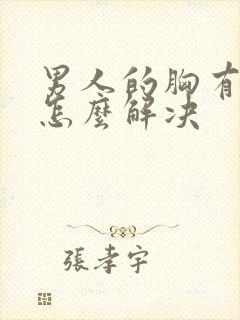 男人的胸有
怎麼解决
張孝宇